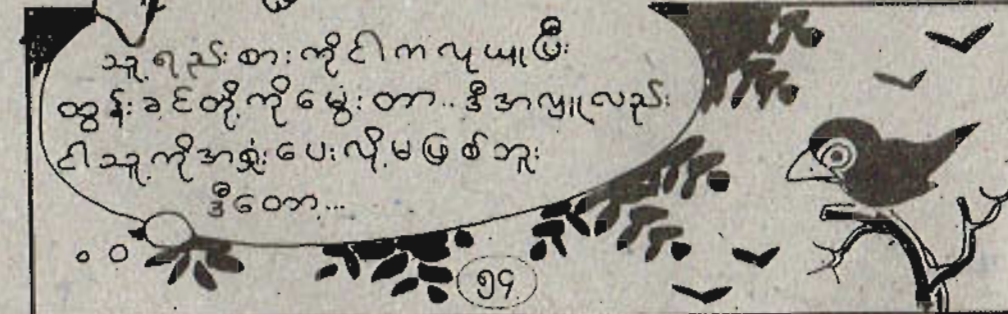 သူ့ရည်းစားကိုငါကလုယူပြီး
ထွန်းခင်တို့ကိုမွေးတာ.. ဒီအလျူလည်း
ငါသူ့ကိုအရှုံးပေးလို့မဖြစ်ဘူး
ဒီတော့...
၅၄